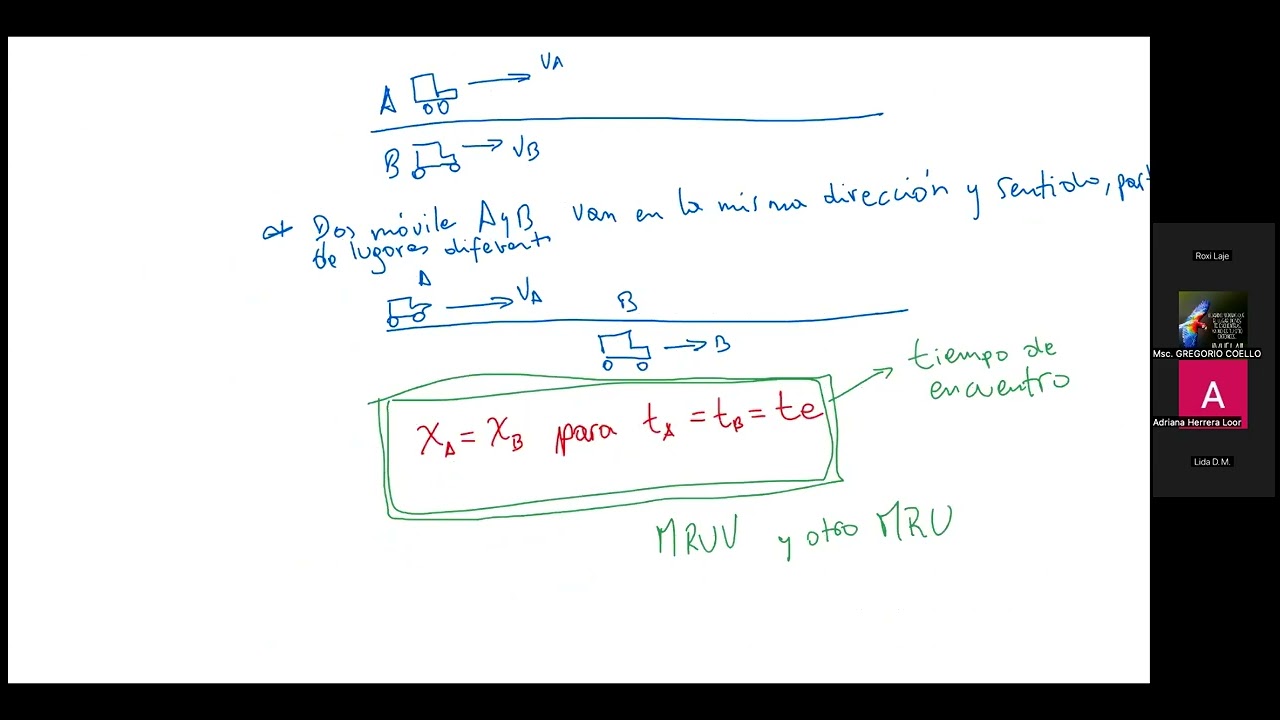 A
VA
B
VB
* Dos móvile A y B van en la misma dirección y sentido, part
de lugares diferent
A
VA
B
B
tiempo de
encuentro
XA = XB para tA = tB = te
MRUV y otro MRU
Roxi Laje
Msc. GREGORIO COELLO
A
Adriana Herrera Loor
Lida D. M.